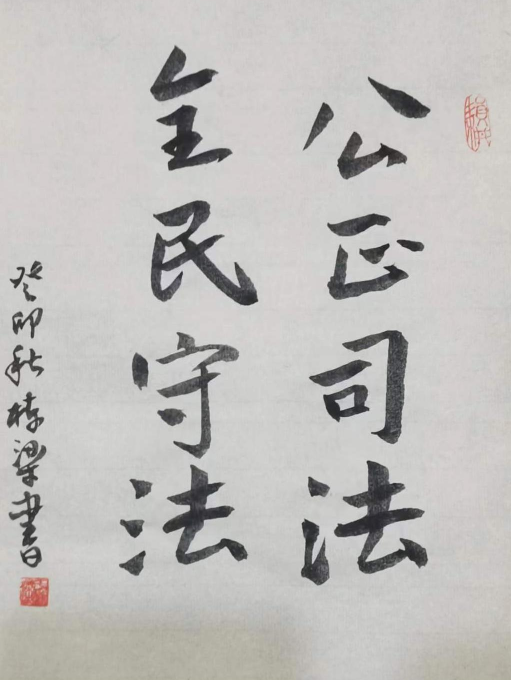 公正司法
全民守法
癸卯秋栋梁书